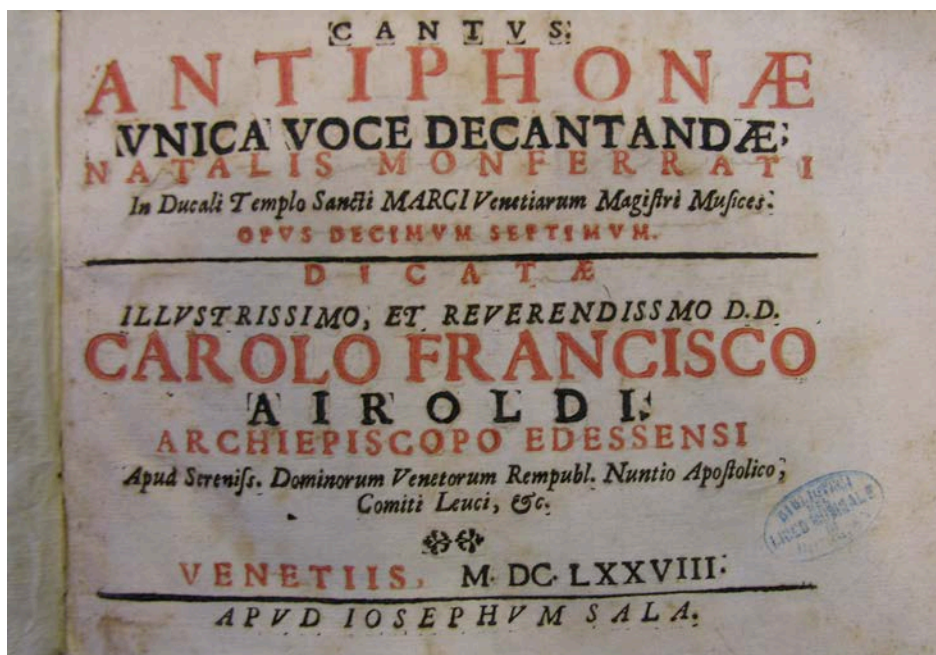 CANTVS.
ANTIPHONÆ
VNICA VOCE DECANTANDÆ;
NATALIS MONFERRATI
In Ducali Templo Sancti MARCI Venetiarum Magiſtri Muſices.
OPVS DECIMVM SEPTIMVM.
DICATÆ
ILLVSTRISSIMO, ET REVERENDISSMO D.D.
CAROLO FRANCISCO
AIROLDI.
ARCHIEPISCOPO EDESSENSI
Apud Sereniſs. Dominorum Venetorum Rempubl. Nuntio Apoſtolico,
Comiti Leuci, &c.
VENETIIS, M. DC. LXXVIII.
APVD IOSEPHVM SALA.
BIBLIOTECA
DEL
LICEO MUSICALE